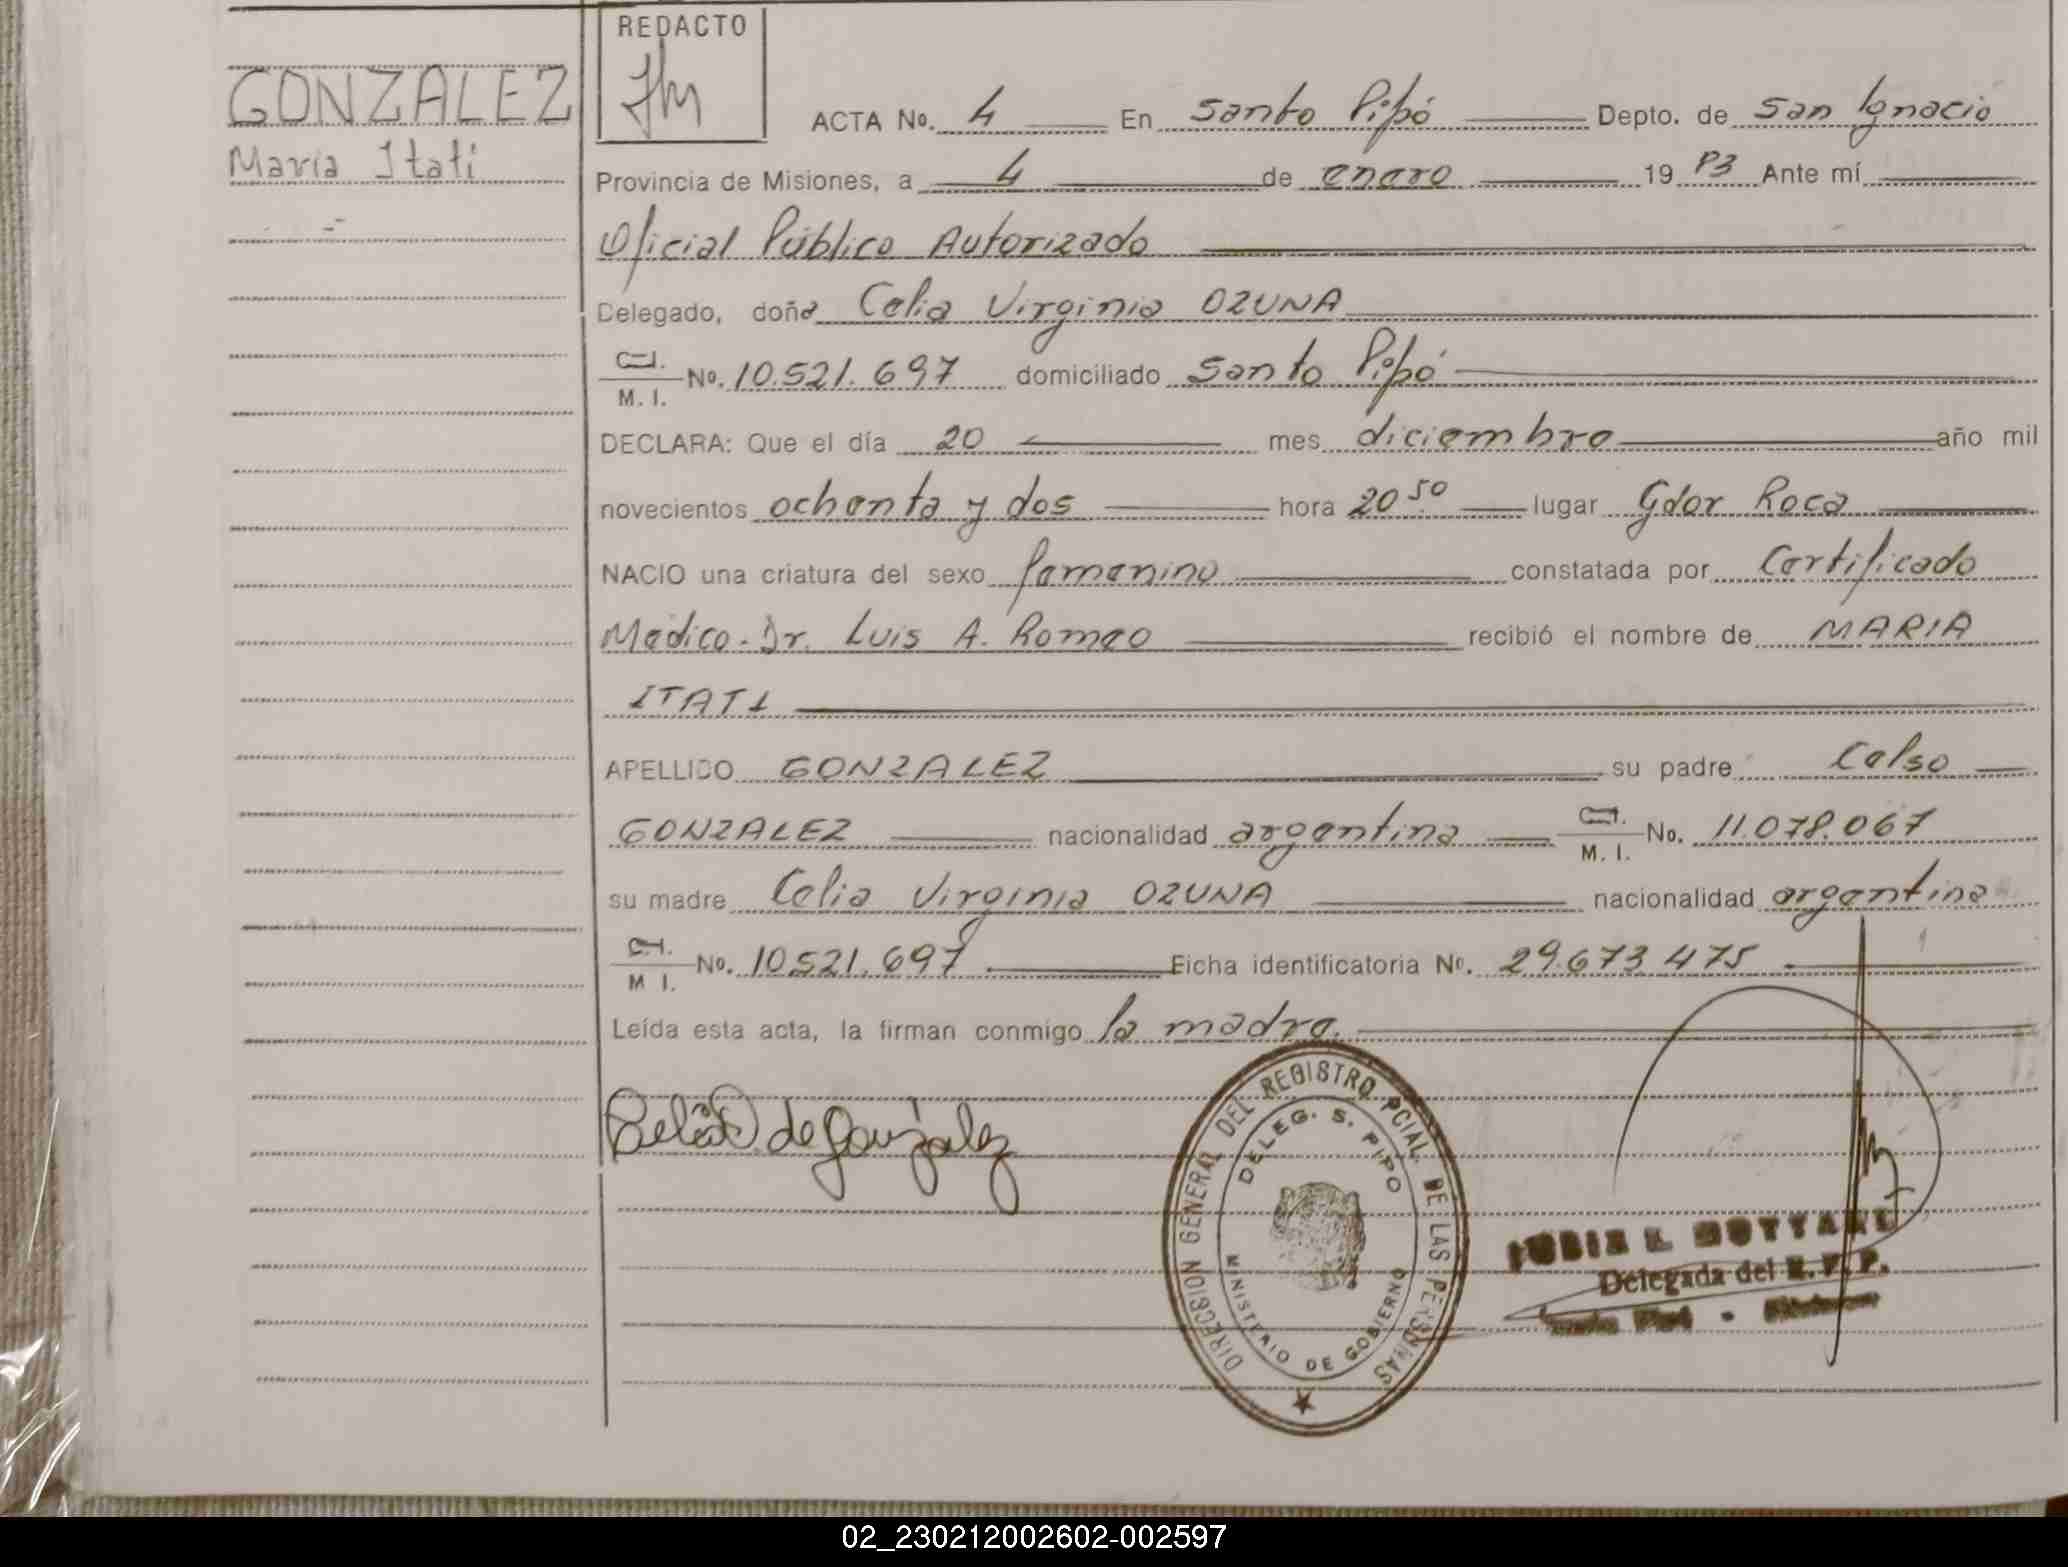 REDACTO
GONZALEZ
Maria Itati
ACTA No. 4 En Santo Pipó Depto. de San Ignacio
Provincia de Misiones, a 4 de enero 19 83 Ante mí
Oficial Público Autorizado
Delegado, doña Celia Virginia OZUNA
C.I. M. I. No. 10.521.697 domiciliado Santo Pipó
DECLARA: Que el día 20 mes diciembre año mil
novecientos ochenta y dos hora 20 50 lugar Gdor Roca
NACIO una criatura del sexo femenino constatada por Certificado
Medico-Dr. Luis A. Romeo recibió el nombre de MARIA
ITATI
APELLIDO GONZALEZ su padre Celso
GONZALEZ nacionalidad argentina C.I. M. I. No. 11.078.067
su madre Celia Virginia OZUNA nacionalidad argentina
C.I. M I. No. 10.521.697 Ficha identificatoria No. 29.673.475
Leída esta acta, la firman conmigo la madre.
de González
DIRECCION GENERAL DEL REGISTRO PCIAL. DE LAS PERSONAS
DELEG. S. PIPO
MINISTERIO DE GOBIERNO
Delegada del R. P. P.
02_230212002602-002597